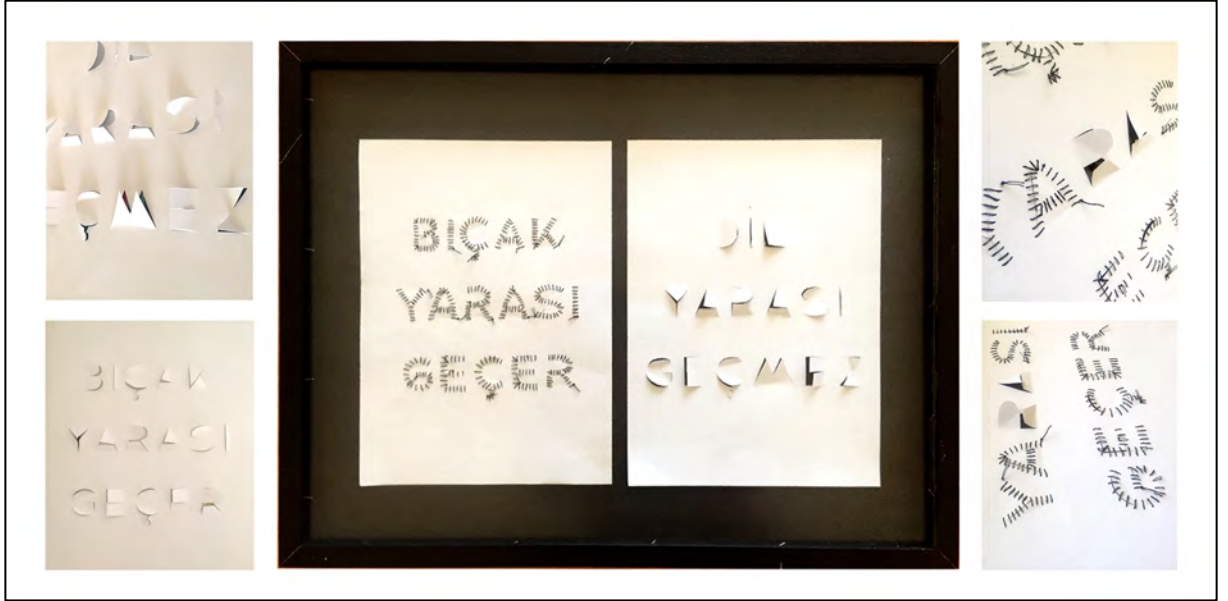 DİL
YARASI
GEÇMEZ
BIÇAK
YARASI
GEÇER
BIÇAK
YARASI
GEÇER
DİL
YARASI
GEÇMEZ
YARASI
GEÇER